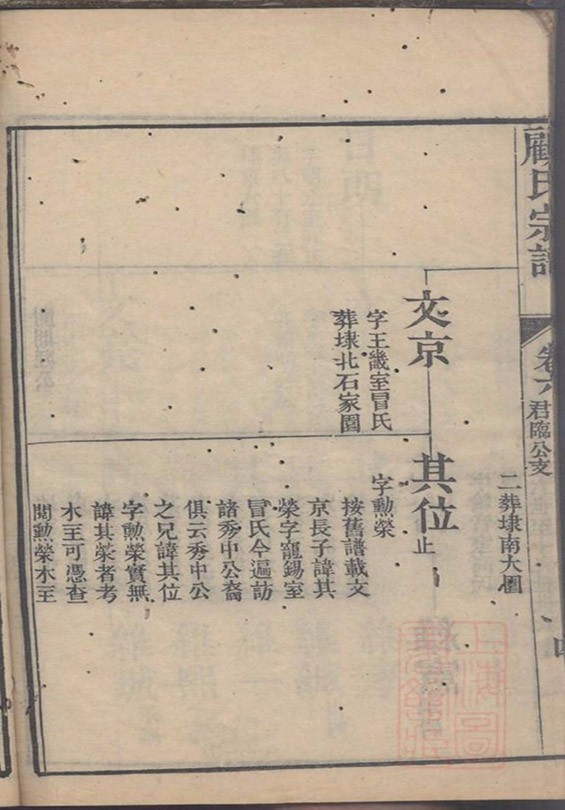 顧氏宗譜
卷六
君臨公支
二葬埭南大園
文京
字王畿室冒氏
葬埭北石家園
其位止
字勲榮
按舊譜載文
京長子諱其
榮字寵錫室
冒氏今遍訪
諸秀中公裔
俱云秀中公
之兄諱其位
字勲榮實無
諱其榮者考
木主可憑查
閱勲榮木主